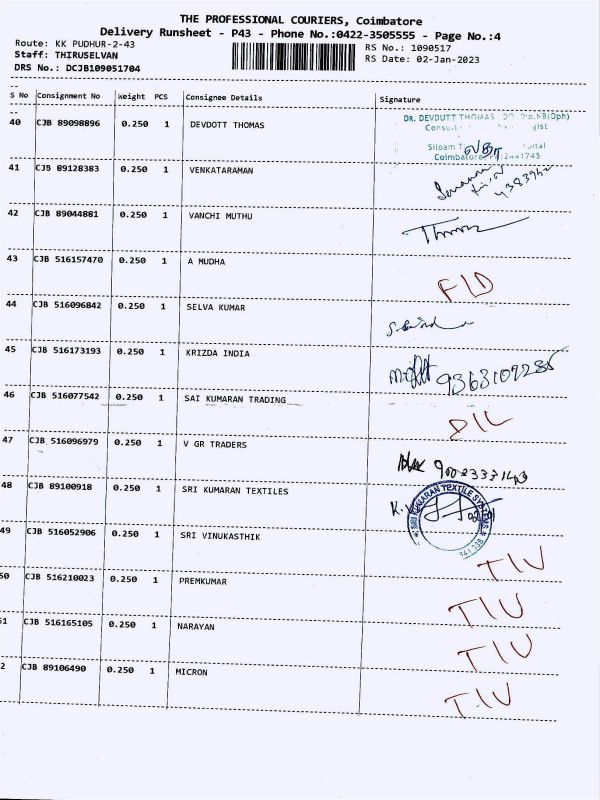 THE PROFESSIONAL COURIERS, Coimbatore
Delivery Runsheet - P43 - Phone No.:0422-3505555 - Page No.:4
Route: KK PUDHUR-2-43 RS No.: 1090517
Staff: THIRUSELVAN RS Date: 02-Jan-2023
DRS No.: DCJB109051704
S No Consignment No Weight PCS Consignee Details Signature
40 CJB 89098896 0.250 1 DEVDOTT THOMAS DR. DEVDUTT THOMAS
Siloam
Coimbatore
41 CJB 89128383 0.250 1 VENKATARAMAN
42 CJB 89044881 0.250 1 VANCHI MUTHU
43 CJB 516157470 0.250 1 A MUDHA F/D
44 CJB 516096842 0.250 1 SELVA KUMAR
45 CJB 516173193 0.250 1 KRIZDA INDIA
46 CJB 516077542 0.250 1 SAI KUMARAN TRADING D/L
47 CJB 516096979 0.250 1 V GR TRADERS
48 CJB 89100918 0.250 1 SRI KUMARAN TEXTILES SRI KUMARAN TEXTILE SYSTEMS
49 CJB 516052906 0.250 1 SRI VINUKASTHIK T/U
50 CJB 516210023 0.250 1 PREMKUMAR T/U
51 CJB 516165105 0.250 1 NARAYAN T/U
2 CJB 89106490 0.250 1 MICRON T/U